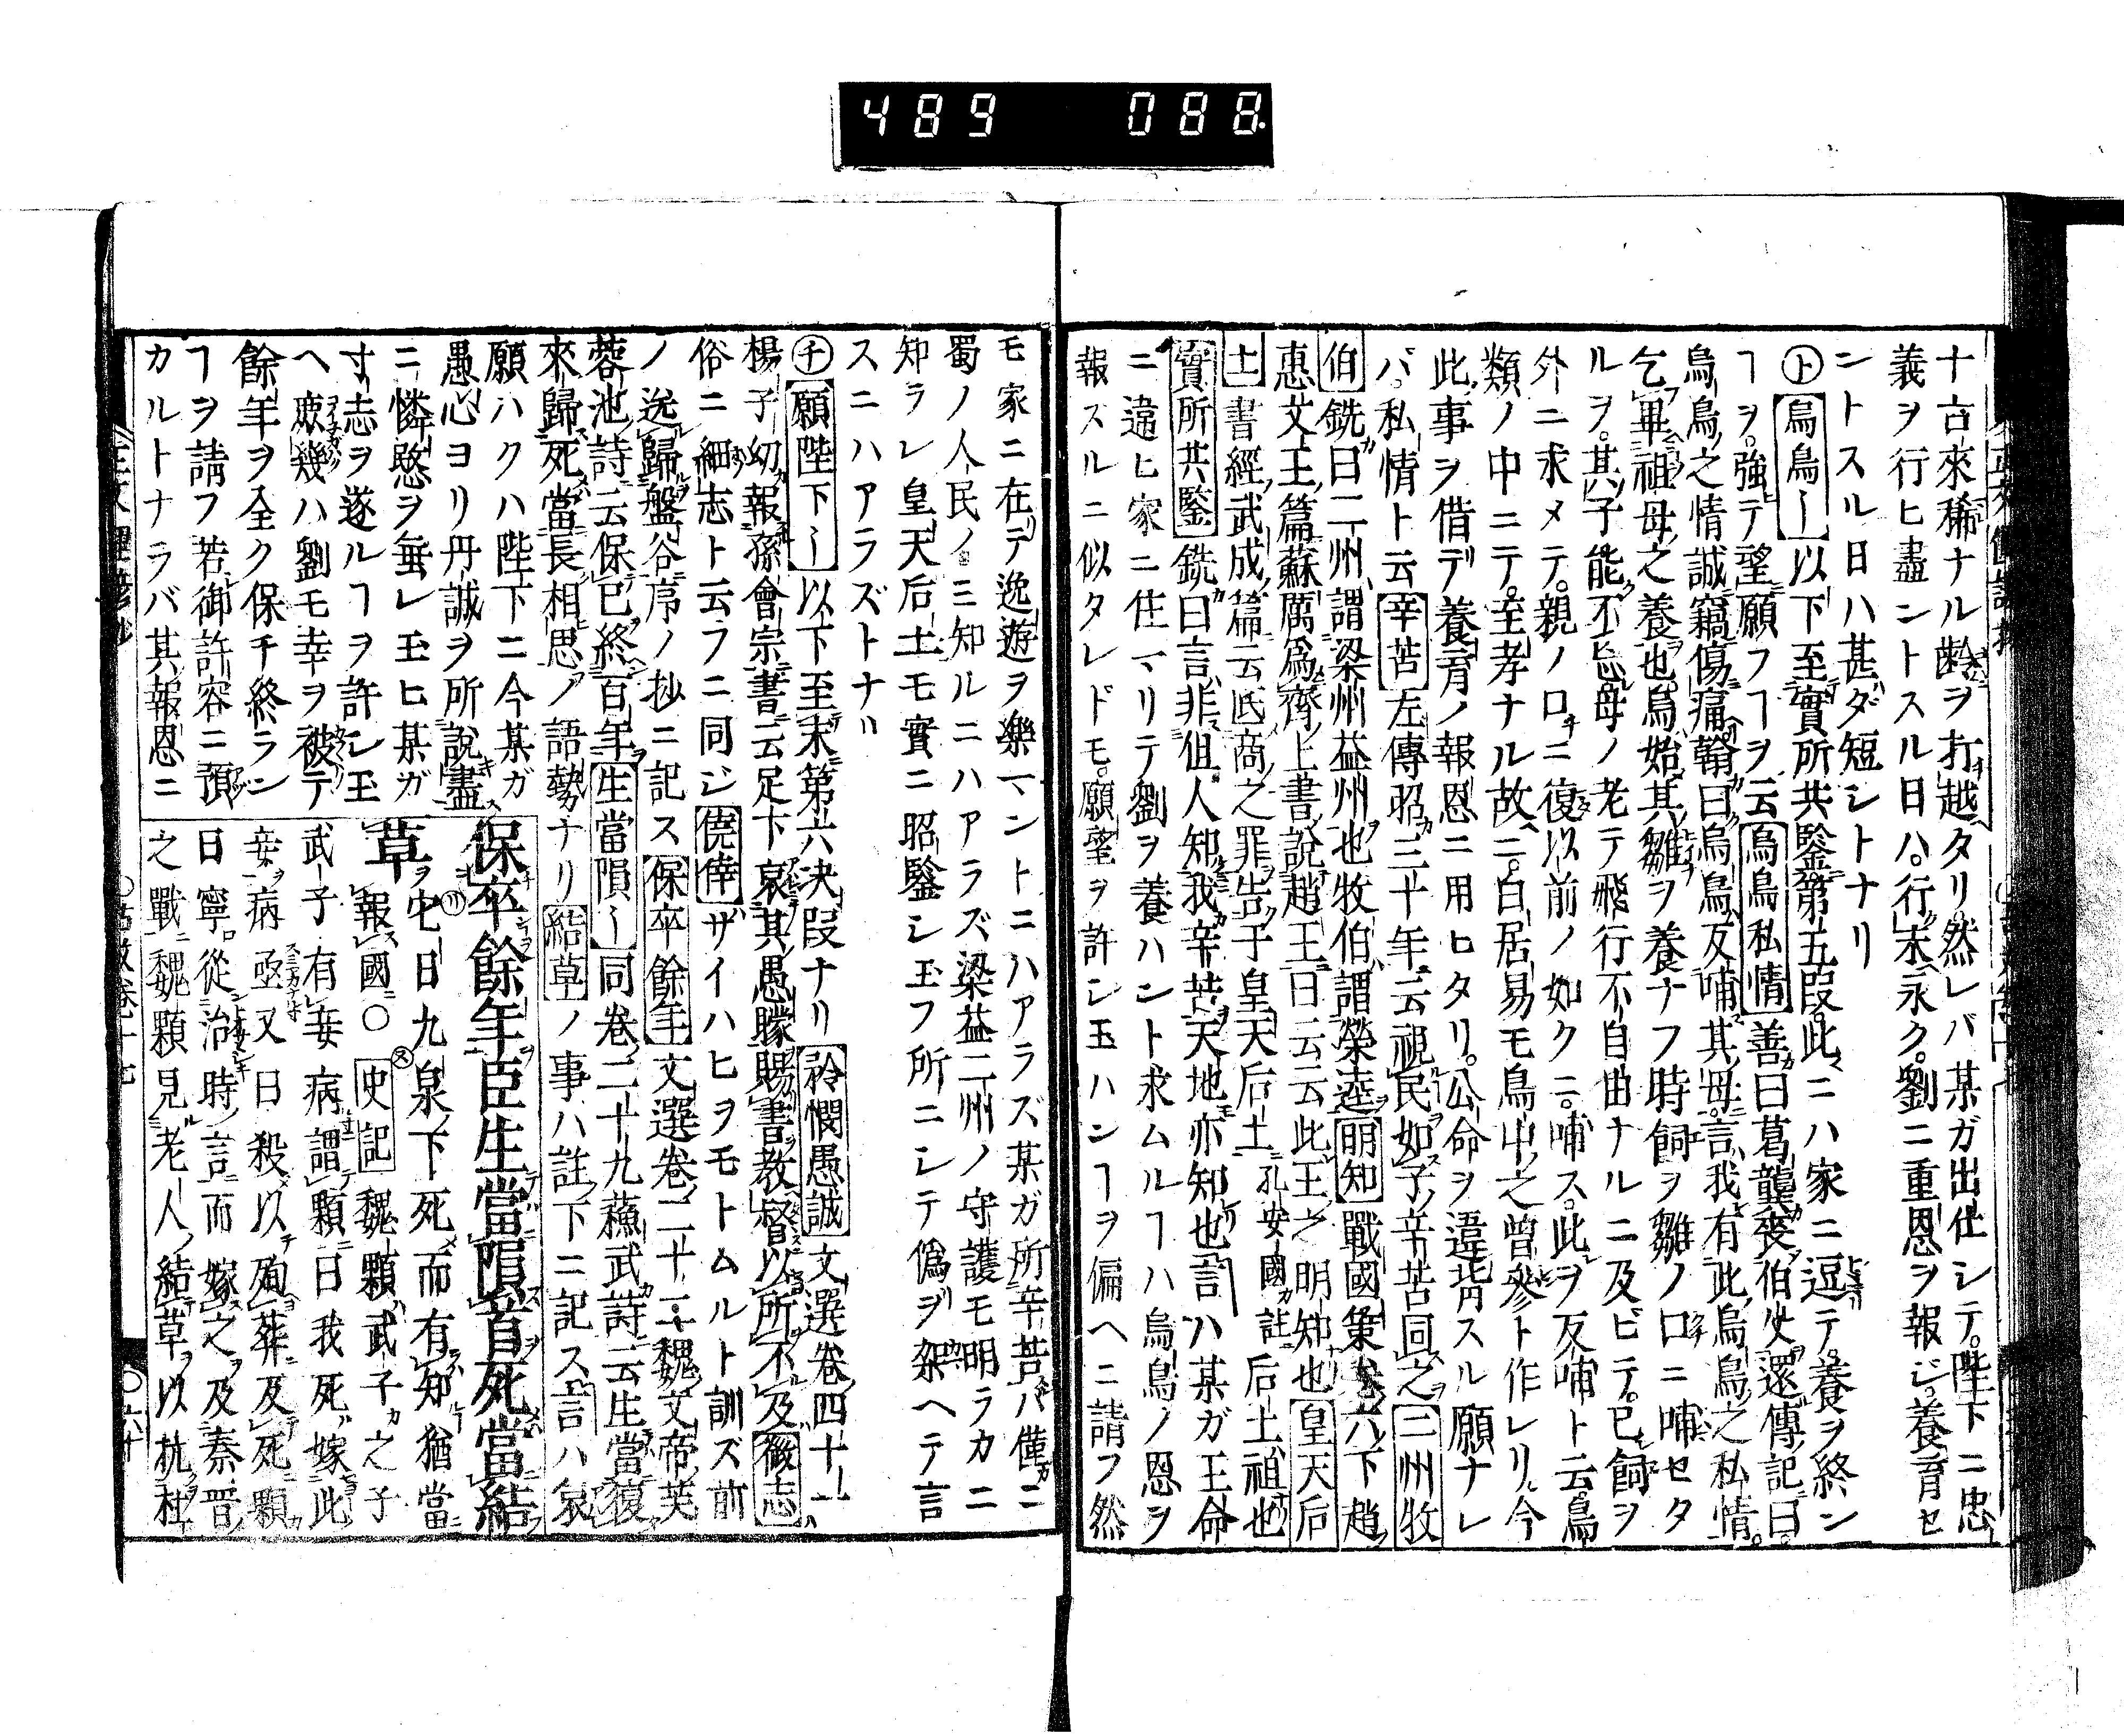 489 088
十古來稀ナル齡ヲ打越タリ然レバ某ガ出仕シテ陛下ニ忠
義ヲ行ヒ盡ントスル日ハ行末永ク劉ニ重恩ヲ報ジ養育セ
ントスル日ハ甚ダ短シトナリ
ト烏鳥〡以下至實所共鑒第五段此ニハ家ニ逗テ養ヲ終ン
ヿヲ強テ望願フヿヲ云烏鳥私情善曰葛龔喪伯父還傳記曰
烏鳥之情誠竊傷痛翰曰烏鳥反哺其母言我有此烏鳥之私情
乞畢祖母之養也烏始其雛ヲ養ナフ時餌ヲ雛ノ口ニ哺セタ
ルヲ其子能不忘母ノ老テ飛行不自由ナルニ及ビテ已餌ヲ
外ニ求メテ親ノ口ニ復以前ノ如クニ哺ス此ヲ反哺ト云鳥
類ノ中ニテ至孝ナル故ニ白居易モ鳥中之曾參ト作レリ今
此事ヲ借デ養育ノ報恩ニ用ヒタリ公命ヲ違背スル願ナレ
バ私情ト云辛苦左傳昭三十年云視民如子辛苦同之二州牧
伯銑曰二州謂梁州益州也牧伯謂榮逵明知戰國策卷六下趙
惠文王篇蘇厲爲齊上書說趙王曰云云此王之明知也皇天后
土書經武成篇云底商之罪告于皇天后土孔安國註后土社也
實所共鑒銑曰言非但人知我辛苦天地亦知也言ハ某ガ王命
ニ違ヒ家ニ住マリテ劉ヲ養ハント求ムルヿハ烏鳥ノ恩ヲ
報スルニ似タレドモ願望ヲ許シ玉ハンヿヲ偏ヘニ請フ然
モ家ニ在テ逸遊ヲ樂マントニハアラズ某ガ所辛苦ハ僅ニ
蜀ノ人民ノミ知ルニハアラズ梁益二州ノ守護モ明ラカニ
知ラレ皇天后土モ實ニ昭鑒シ玉フ所ニシテ僞ヲ架ヘテ言
スニハアラズトナリ
チ願陛下〡以下至末第六決段ナリ矜憫愚誠文選卷四十一
楊子幼報孫會宗書云足下哀其愚矇賜書教督以所不及微志
俗ニ細志ト云フニ同ジ僥倖ザイハヒヲモトムルト訓ズ前
ノ送歸盤谷序ノ抄ニ記ス保卒餘年文選卷二十二魏文帝芙
蓉池詩云保已終百年生當隕〡同卷二十九蘓武詩云生當復
來歸死當長相思ノ語勢ナリ結草ノ事ハ註下ニ記ス言ハ哀
願ハクハ陛下ニ今某ガ
愚心ヨリ丹誠ヲ所說盡
ニ憐愍ヲ垂レ玉ヒ某ガ
寸志ヲ遂ルヿヲ許シ玉
ヘ庶幾ハ劉モ幸ヲ被テ
餘年ヲ全ク保チ終ラン
ヿヲ請フ若御許容ニ預
カルトナラバ其報恩ニ
保卒餘年臣生當隕首死當結
草ヲ史曰九泉下死而有知猶當
報國○史記魏顆武子之子
武子有妾病謂顆曰我死嫁此
妾病亟又曰殺以殉葬及死顆
曰寧從治時言而嫁之及秦晉
之戰魏顆見老人結草以抗杜
○六十